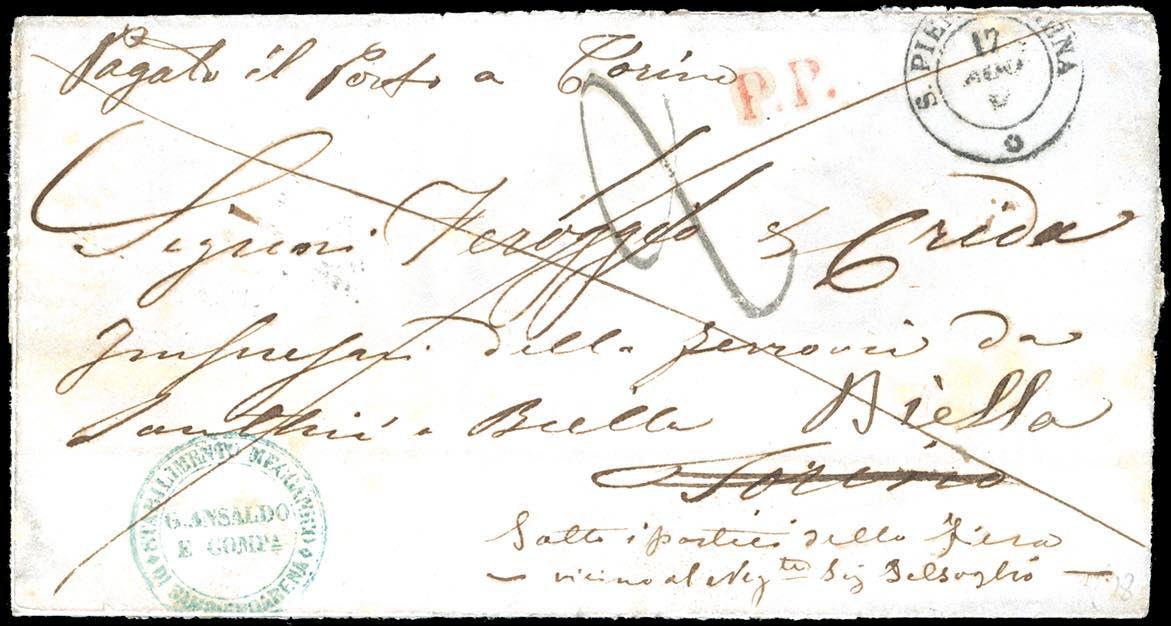 Pagato il Porto a Torino
P.P.
S. PIER ENA
17
AGO
Signori Veroggio & Crida
Impresari della ferrovia da
Santhià a Biella Biella
Torino
Sotto i portici della Fiera
vicino al Neg.te Sig Delsoglio
STABILIMENTO MECCANICO
G. ANSALDO
E COMP.A
DI SAMPIERDARENA